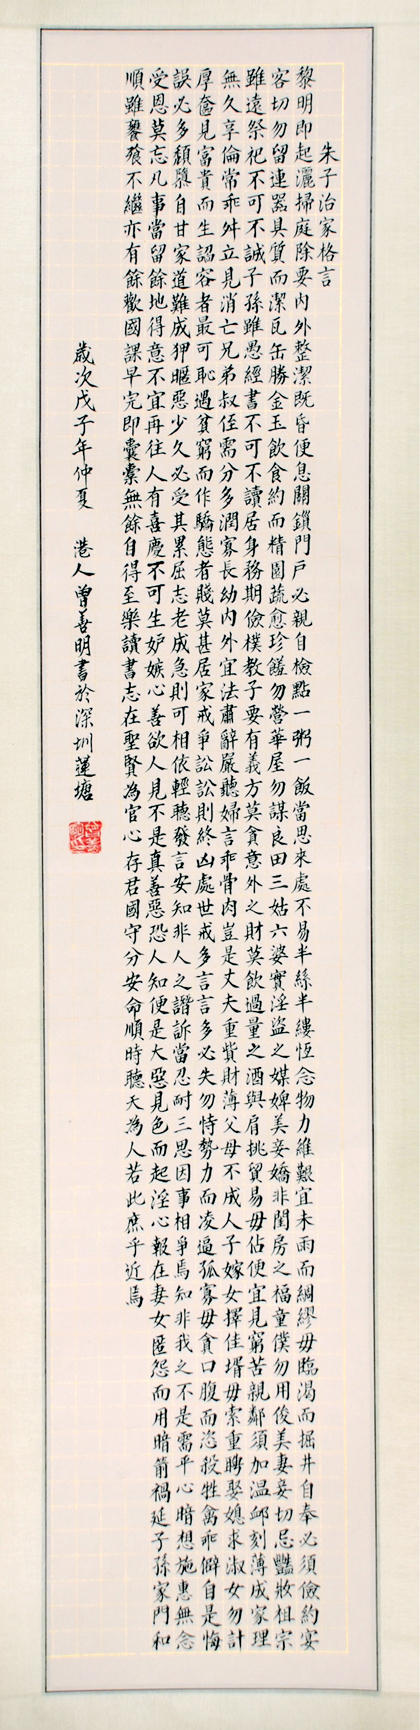 朱子治家格言
黎明即起灑掃庭除要內外整潔既昏便息關鎖門戶必親自檢點一粥一飯當思來處不易半絲半縷恆念物力維艱宜未雨而綢繆毋臨渴而掘井自奉必須儉約宴
客切勿留連器具質而潔瓦缶勝金玉飲食約而精園蔬愈珍饈勿營華屋勿謀良田三姑六婆實淫盜之媒婢美妾嬌非閨房之福童僕勿用俊美妻妾切忌艷妝祖宗
雖遠祭祀不可不誠子孫雖愚經書不可不讀居身務期儉樸教子要有義方莫貪意外之財莫飲過量之酒與肩挑貿易毋佔便宜見窮苦親鄰須加溫卹刻薄成家理
無久享倫常乖舛立見消亡兄弟叔侄需分多潤寡長幼內外宜法肅辭嚴聽婦言乖骨肉豈是丈夫重貲財薄父母不成人子嫁女擇佳壻毋索重聘娶媳求淑女勿計
厚奩見富貴而生諂容者最可恥遇貧窮而作驕態者賤莫甚居家戒爭訟訟則終凶處世戒多言言多必失勿恃勢力而凌逼孤寡毋貪口腹而恣殺牲禽乖僻自是悔
誤必多頹隳自甘家道難成狎暱惡少久必受其累屈志老成急則可相依輕聽發言安知非人之譖訴當忍耐三思因事相爭焉知非我之不是需平心暗想施惠無念
受恩莫忘凡事當留餘地得意不宜再往人有喜慶不可生妒嫉心善欲人見不是真善惡恐人知便是大惡見色而起淫心報在妻女匿怨而用暗箭禍延子孫家門和
順雖饔飧不繼亦有餘歡國課早完即囊橐無餘自得至樂讀書志在聖賢為官心存君國守分安命順時聽天為人若此庶乎近焉
歲次戊子年仲夏 港人曾善明書於深圳蓮塘